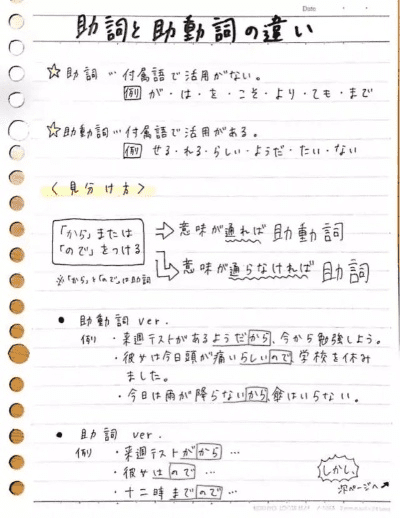 Date
助詞と助動詞の違い
☆助詞…付属語で活用がない。
例 が・は・を・こそ・より・ても・まで
☆助動詞…付属語で活用がある。
例 せる・れる・らしい・ようだ・たい・ない
〈見分け方〉
「から」または「ので」をつける
⇒意味が通れば助動詞
※「から」と「ので」は助詞
⇒意味が通らなければ助詞
● 助動詞 ver.
例 ・来週テストがあるようだから、今から勉強しよう。
・彼女は今日頭が痛いらしいので、学校を休み
ました。
・今日は雨が降らないから、傘はいらない。
● 助詞 ver.
例 ・来週テストがから…
・彼女はので…
・十二時までので…
しかし、
次ページへ↗